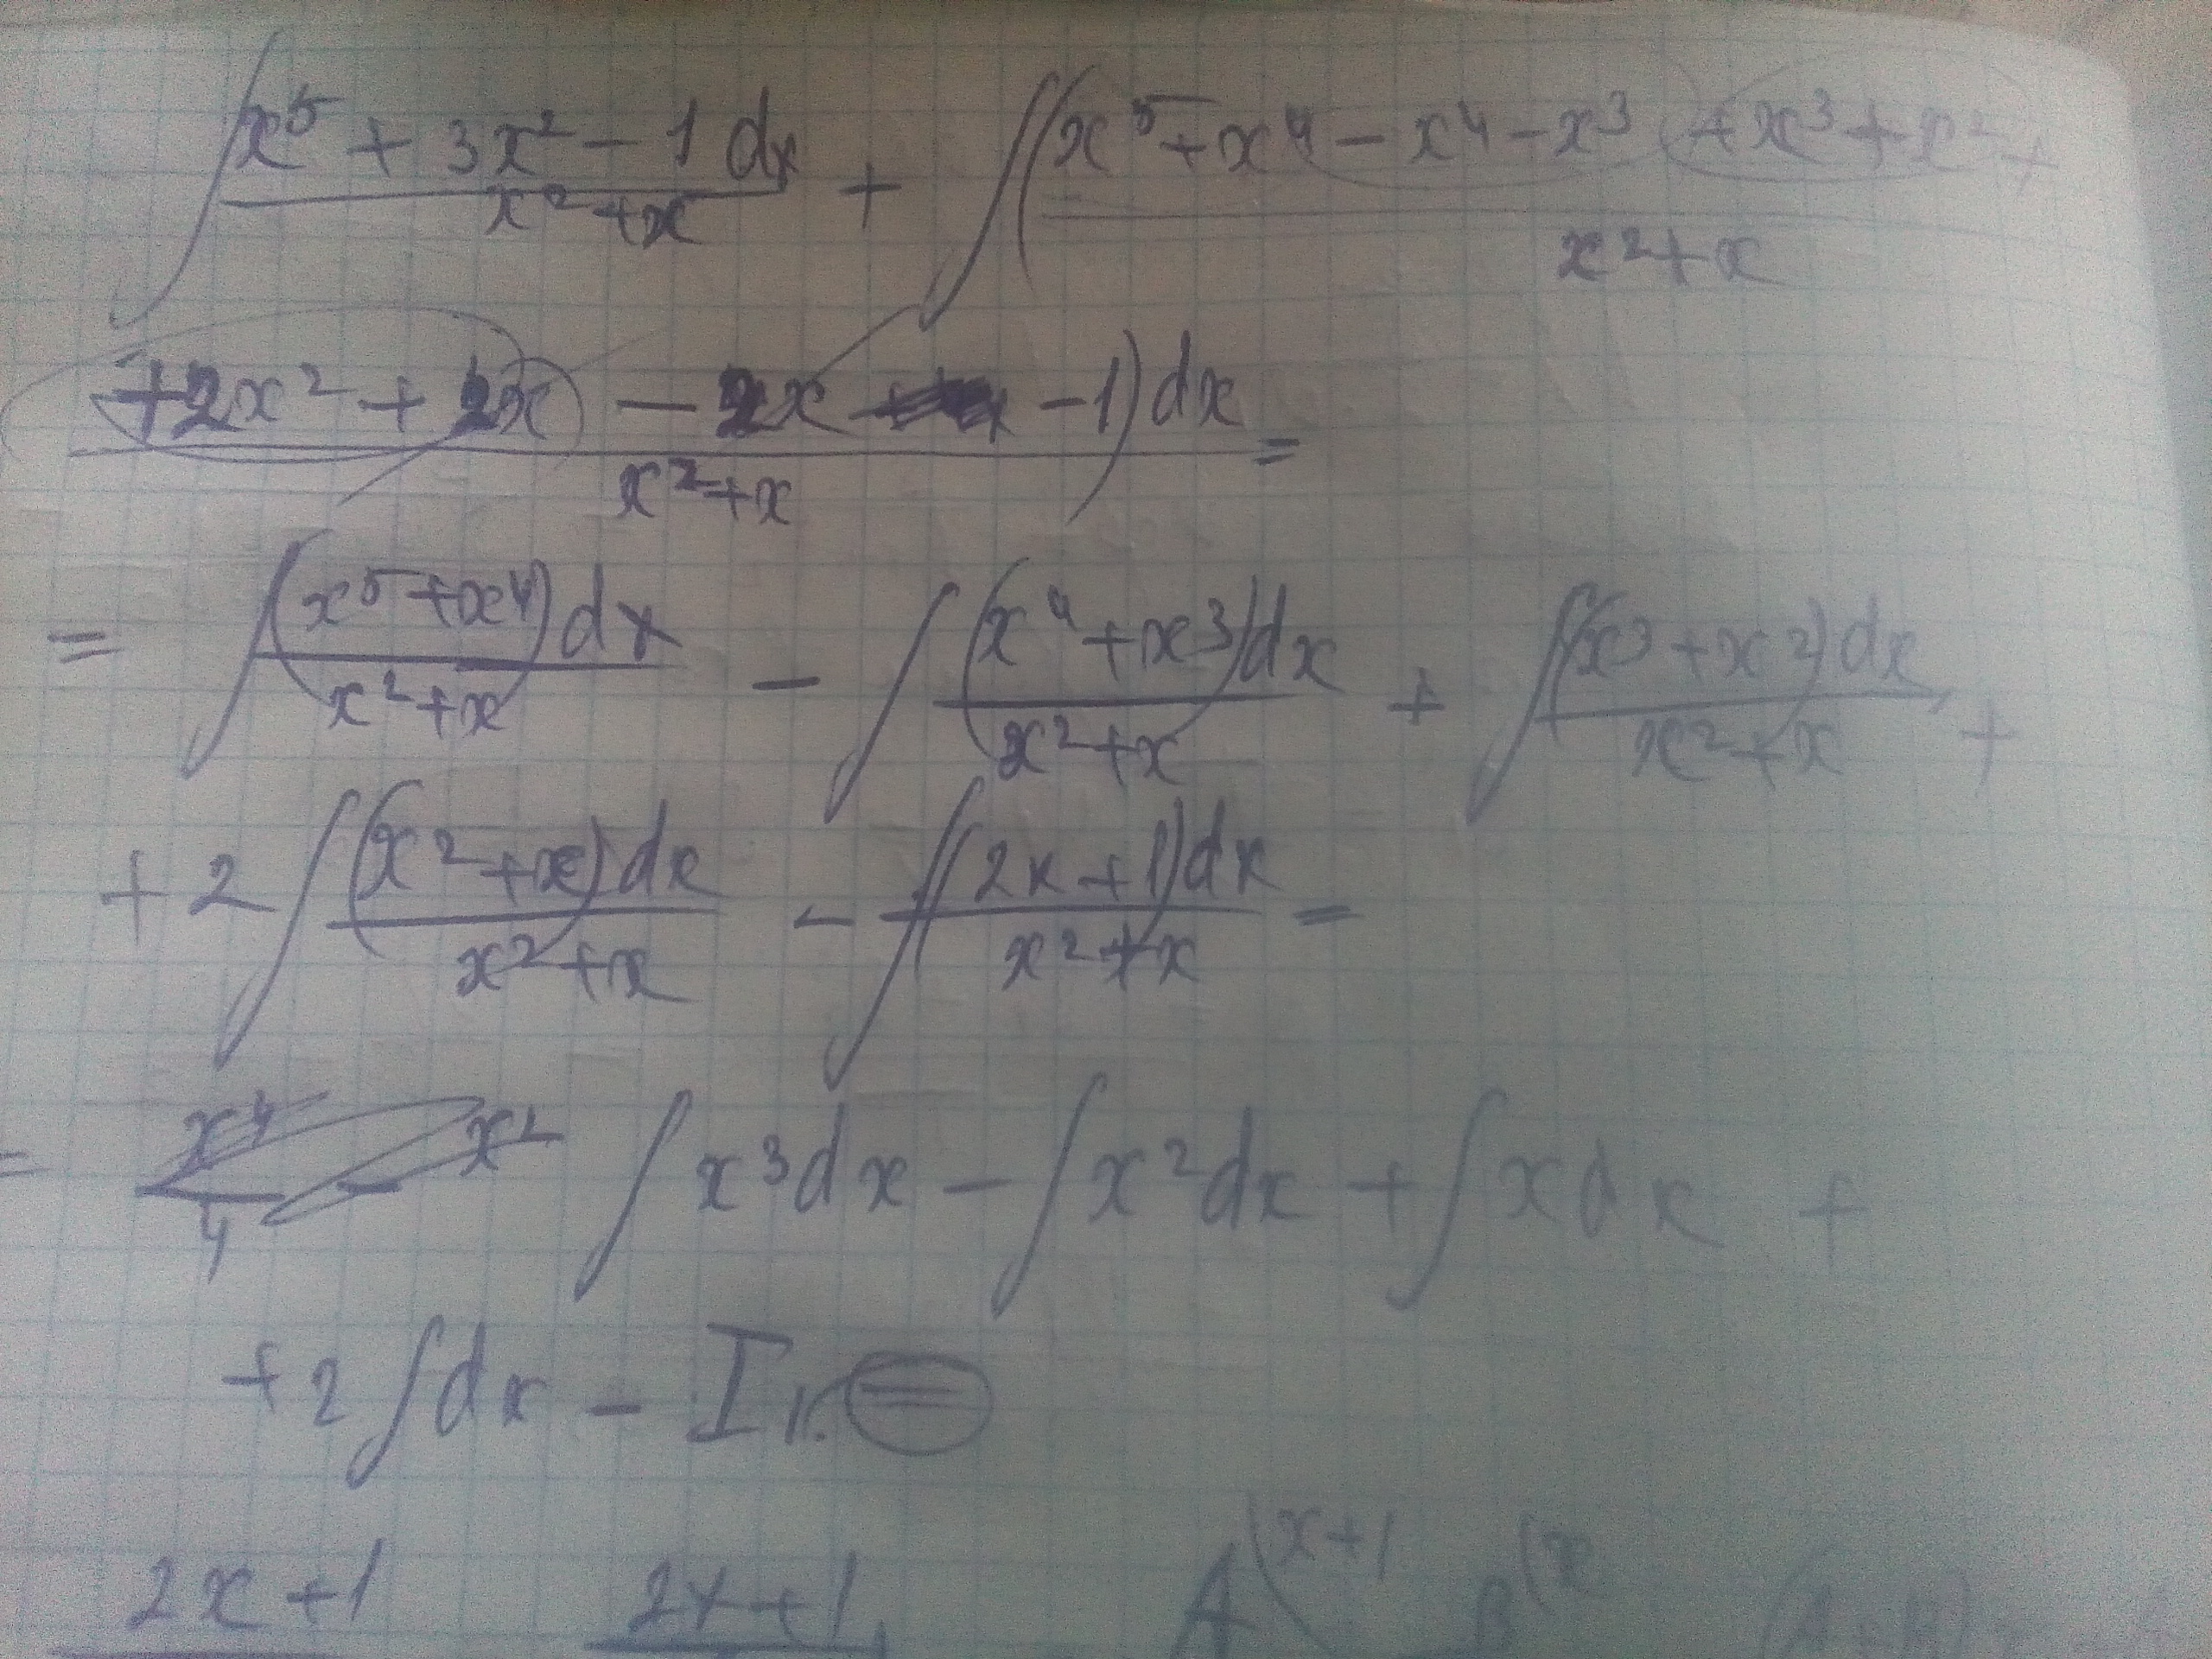 ∫ (x⁵ + 3x² − 1 dx)/(x² + x) + ∫ (x⁵ + x⁴ − x⁴ − x³ + x³ + x² +)/(x² + x)
(+ 2x² + 2x − 2x − 1) dx/(x² + x) =
= ∫ (x⁵ + x⁴) dx/(x² + x) − ∫ (x⁴ + x³) dx/(x² + x) + ∫ (x³ + x²) dx/(x² + x) +
+ 2 ∫ (x² + x) dx/(x² + x) − ∫ (2x + 1) dx/(x² + x) =
= x⁴/4 − x² ∫ x³ dx − ∫ x² dx + ∫ x dx +
+ 2 ∫ dx − I₁. =
2x + 1 2x + 1 A (x + 1 B (x